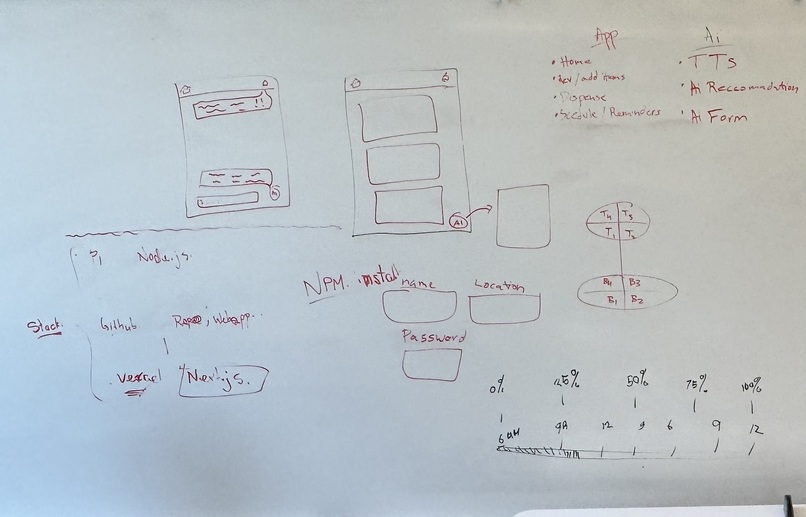 App
• Home
• Rev/add items
• Dispense
• Scedule / Reminders
Ai
• TTS
• Ai Reccomndation
• Ai Form
!!
AI
T4 T3
T1 T2
B4 B3
B1 B2
Pi Node.js.
NPM install
name
Location
Password
Stack
Github
Web app..
Vercel
Next.js.
0% 25% 50% 75% 100%
6AM 9A 12 3 6 9 12